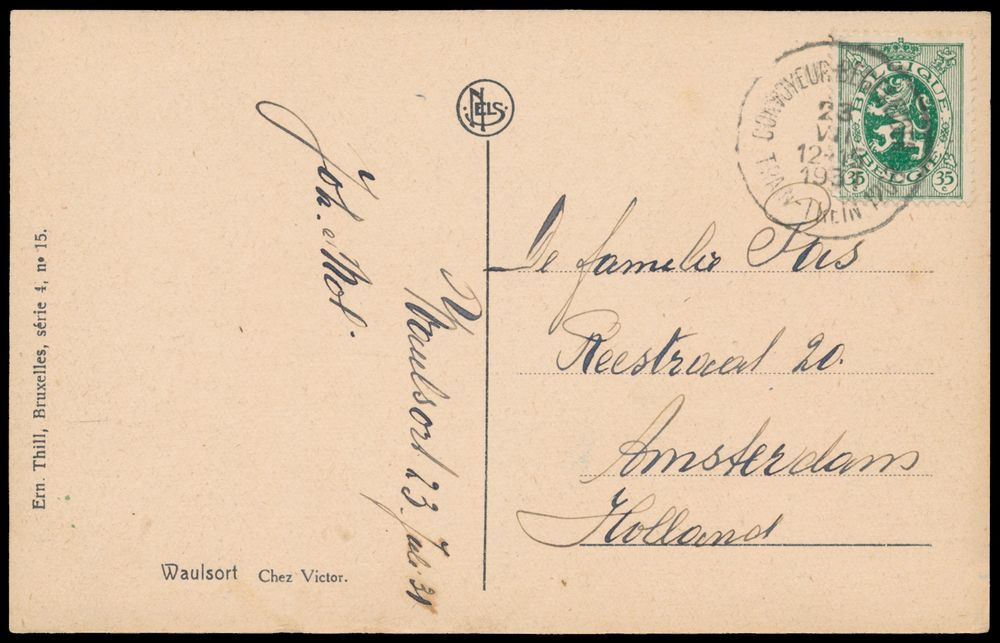 NELS
BELGIQUE
BELGIË
35 c
35 c
CONVOYEUR-BEG
23
VII
12-15
193
TREIN
Joh. Mol.
Waulsort 23 Juli 31
De familie Pas
Reestraat 20.
Amsterdam
Holland
Ern. Thill, Bruxelles, série 4, nº 15.
Waulsort Chez Victor.